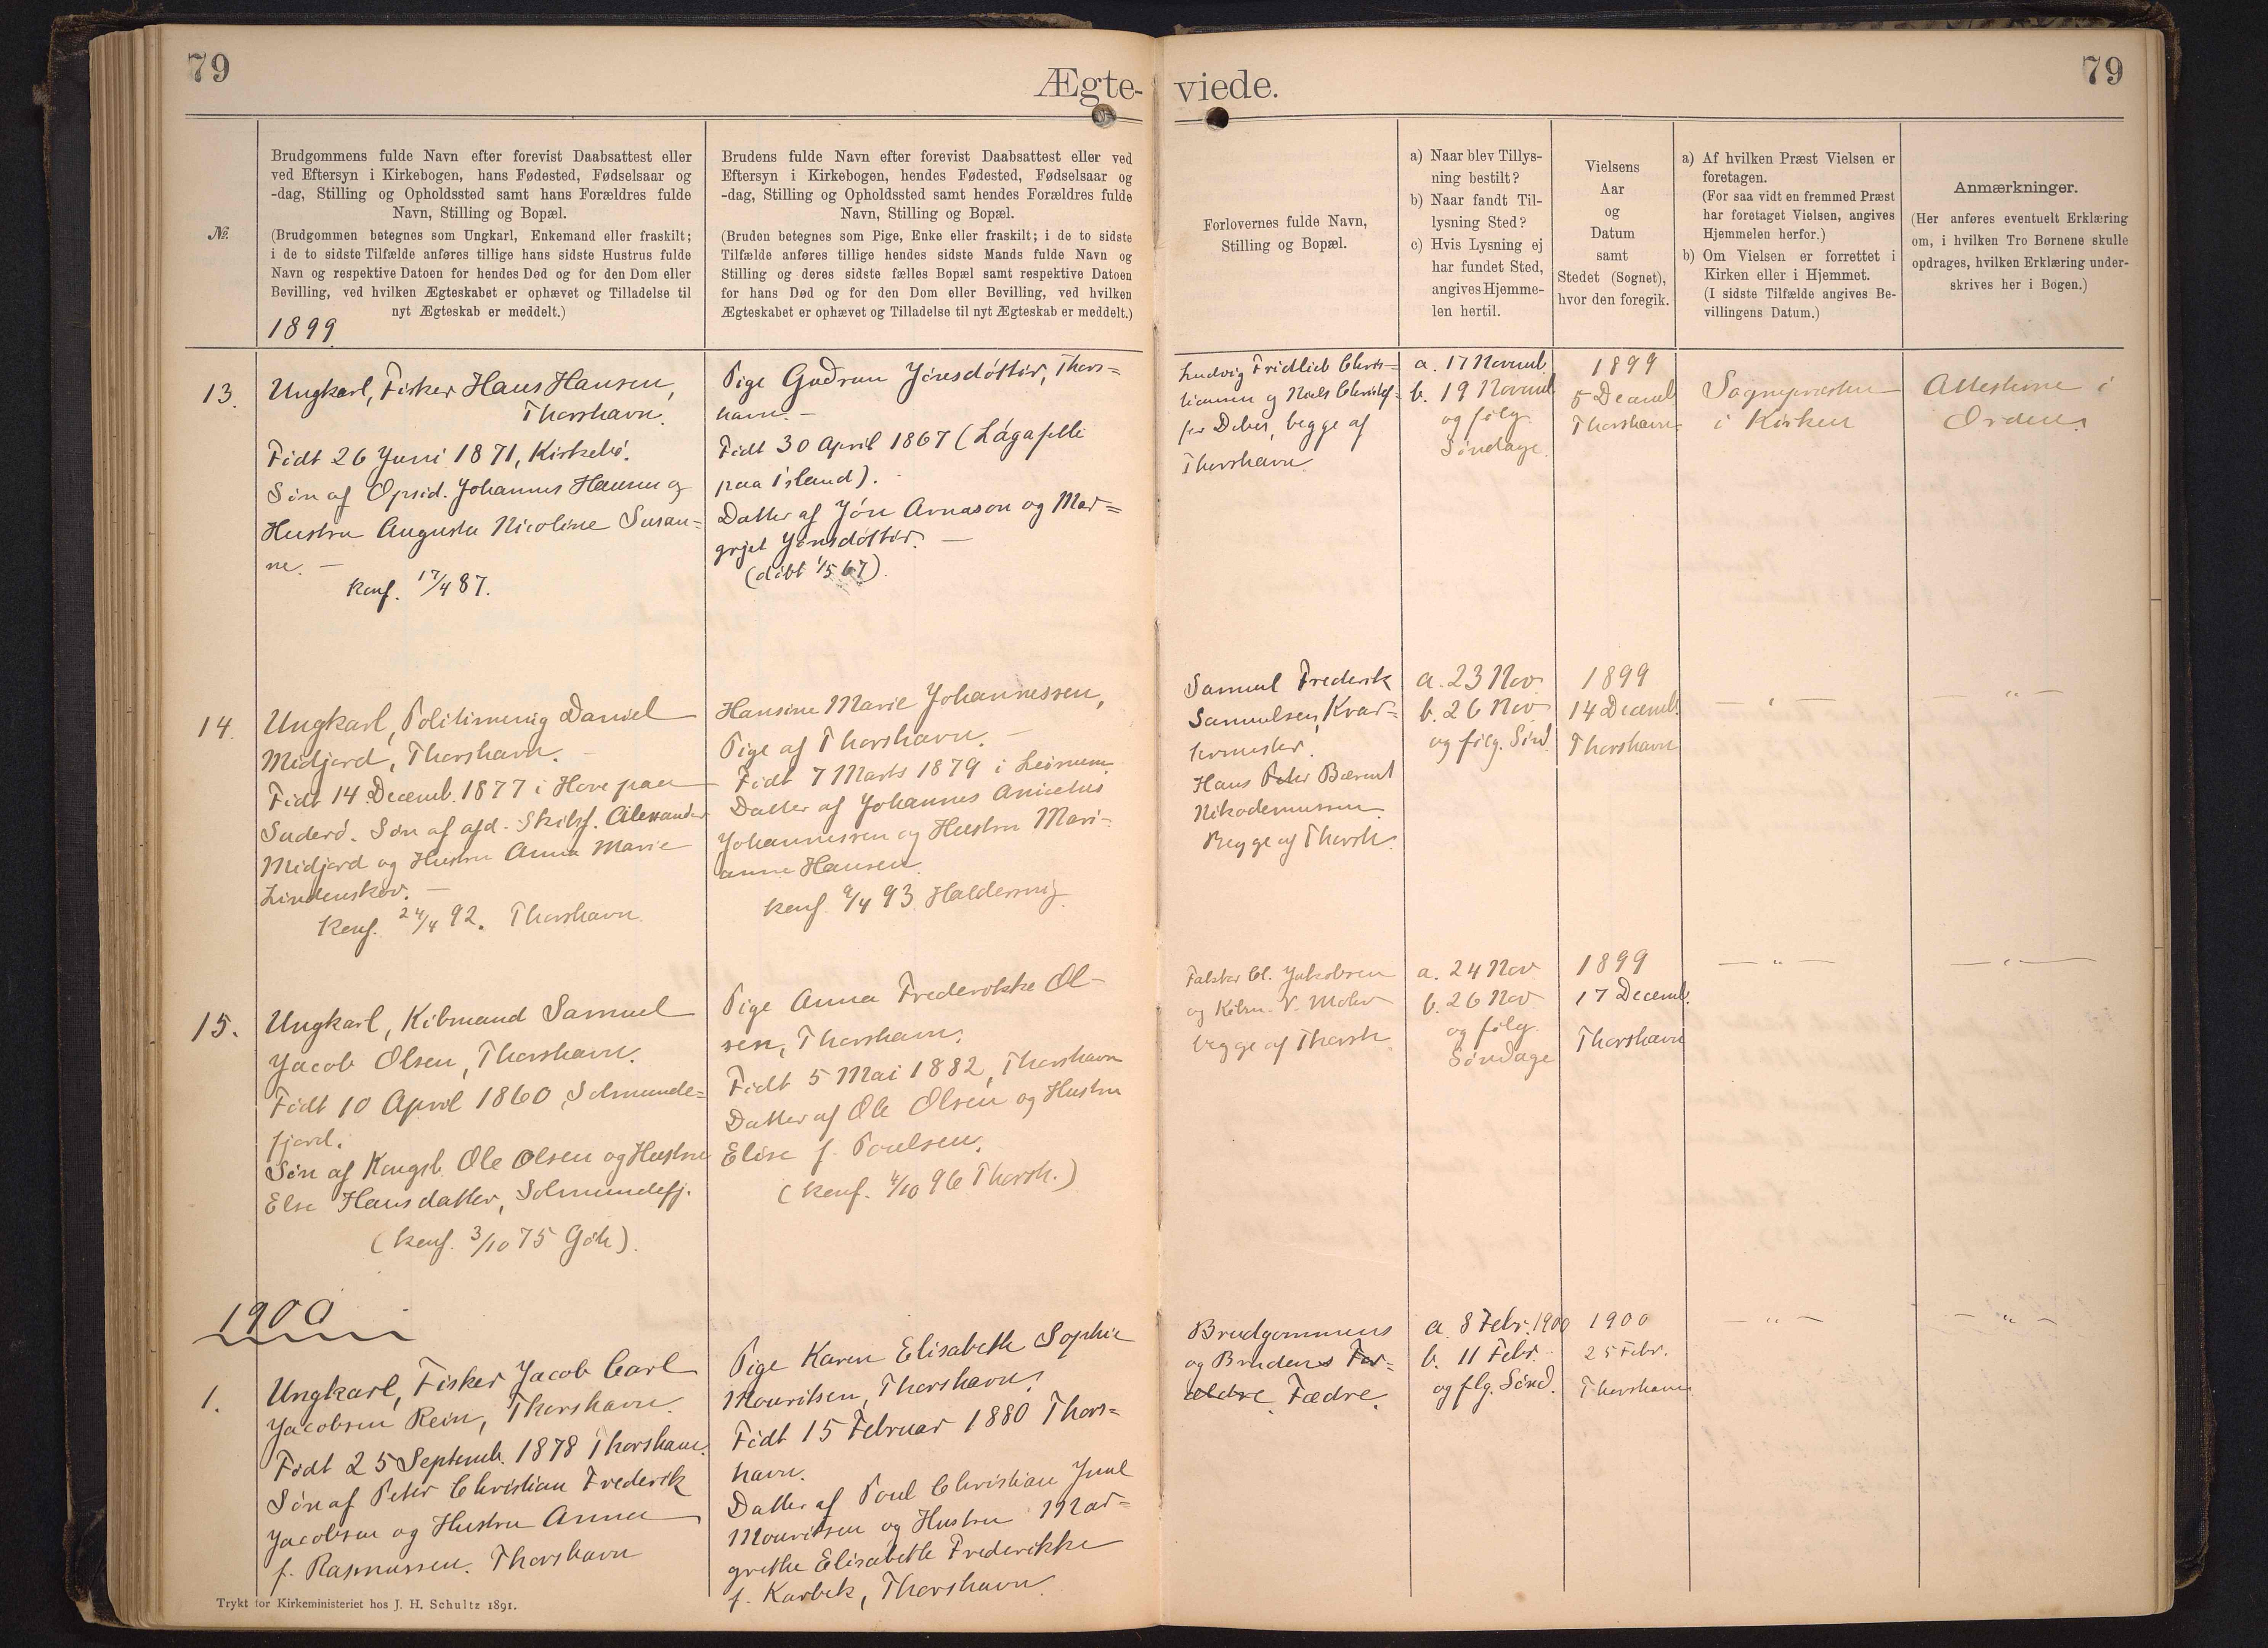 79
Ægte-
viede.
79
№.
Brudgommens fulde Navn efter forevist Daabsattest eller
ved Eftersyn i Kirkebogen, hans Fødested, Fødselsaar og
-dag, Stilling og Opholdssted samt hans Forældres fulde
Navn, Stilling og Bopæl.
(Brudgommen betegnes som Ungkarl, Enkemand eller fraskilt;
i de to sidste Tilfælde anføres tillige hans sidste Hustrus fulde
Navn og respektive Datoen for hendes Død og for den Dom eller
Bevilling, ved hvilken Ægteskabet er ophævet og Tilladelse til
nyt Ægteskab er meddelt.)
1899
Brudens fulde Navn efter forevist Daabsattest eller ved
Eftersyn i Kirkebogen, hendes Fødested, Fødselsaar og
-dag, Stilling og Opholdssted samt hendes Forældres fulde
Navn, Stilling og Bopæl.
(Bruden betegnes som Pige, Enke eller fraskilt; i de to sidste
Tilfælde anføres tillige hendes sidste Mands fulde Navn og
Stilling og deres sidste fælles Bopæl samt respektive Datoen
for hans Død og for den Dom eller Bevilling, ved hvilken
Ægteskabet er ophævet og Tilladelse til nyt Ægteskab er meddelt.)
Forlovernes fulde Navn,
Stilling og Bopæl.
a) Naar blev Tillys-
ning bestilt?
b) Naar fandt Til-
lysning Sted?
c) Hvis Lysning ej
har fundet Sted,
angives Hjemme-
len hertil.
Vielsens
Aar
og
Datum
samt
Stedet (Sognet),
hvor den foregik.
a) Af hvilken Præst Vielsen er
foretagen.
(For saa vidt en fremmed Præst
har foretaget Vielsen, angives
Hjemmelen herfor.)
b) Om Vielsen er forrettet i
Kirken eller i Hjemmet.
(I sidste Tilfælde angives Be-
villingens Datum.)
Anmærkninger.
(Her anføres eventuelt Erklæring
om, i hvilken Tro Børnene skulle
opdrages, hvilken Erklæring under-
skrives her i Bogen.)
13.
Ungkarl, Fisker Hans Hansen,
Thorshavn.
Født 26 Juni 1871, Kirkebø.
Søn af Opsid. Johannes Hansen og
Hustru Augusta Nicoline Susan=
ne. —
Konf. 17/4 87.
Pige Guðrun Jónsdóttir, Thors=
havn. —
Født 30 April 1867 (Lágafelli
paa Island).
Datter af Jón Arnason og Mar=
grjet Jónsdóttir. —
(døbt 1/5 67).
Ludvig Fridlieb Chris=
tiansen og Niels Christof=
fer Debes, begge af
Thorshavn
a. 17 Novemb.
b. 19 Novemb
og følg.
Søndage.
1899
5 Decemb
Thorshavn
Sognepræsten
i Kirken
Attesterne i
Orden.
14.
Ungkarl, Politibetjent Daniel
Midjord, Thorshavn. —
Født 14 Decemb. 1877 i Hove paa
Suderø. Søn af afd. Skibsf. Alexander
Midjord og Hustru Anna Marie
Lindenskov. —
Konf. 24/4 92. Thorshavn
Hansine Marie Johannessen,
Pige af Thorshavn. —
Født 7 Marts 1879 i Leinum
Datter af Johannes Anicetus
Johannessen og Hustru Mari-
anne Hansen.
Konf. 9/4 93 Haldersvig
Samuel Frederik
Samuelsen, Kvar-
termester.
Hans Peter Bærent
Nikodemussen
Begge af Thorsh.
a. 23 Nov.
b. 26 Nov
og følg. Sønd.
1899
14 Decemb.
Thorshavn
— " —
— " —
15.
Ungkarl, Købmand Samuel
Jacob Olsen, Thorshavn.
Født 10 April 1860, Solmunde=
fjord.
Søn af Kongsb. Ole Olsen og Hustru
Else Hansdatter, Solmundefj.
(Konf. 3/10 75 Gøte).
Pige Anna Frederikke Ol-
sen, Thorshavn.
Født 5 Mai 1882, Thorshavn
Datter af Ole Olsen og Hustru
Elise f. Poulsen.
(Konf. 4/10 96 Thorsh.)
Cl. Jakobsen
og Købm. V. Mohr
begge af Thorsh.
a. 24 Nov
b. 26 Nov
og følg.
Søndage
1899
17 Decemb.
Thorshavn
— " —
— " —
1900
1.
Ungkarl, Fisker Jacob Carl
Jacobsen Rein, Thorshavn.
Født 25 Septemb. 1878 Thorshavn.
Søn af Peter Christian Frederik
Jacobsen og Hustru Anna
f. Rasmussen. Thorshavn
Pige Karen Elisabeth Sophie
Mouritsen, Thorshavn.
Født 15 Februar 1880 Thors=
havn.
Datter af Poul Christian Juul
Mouritsen og Hustru Mar=
grethe Elisabeth Frederikke
f. Karbek, Thorshavn.
Brudgommens
og Brudens For=
ældre Fædre.
a. 8 Febr. 1900
b. 11 Febr.
og flg. Sønd.
1900
25 Febr.
Thorshavn
— " —
— " —
Trykt for Kirkeministeriet hos J. H. Schultz 1891.